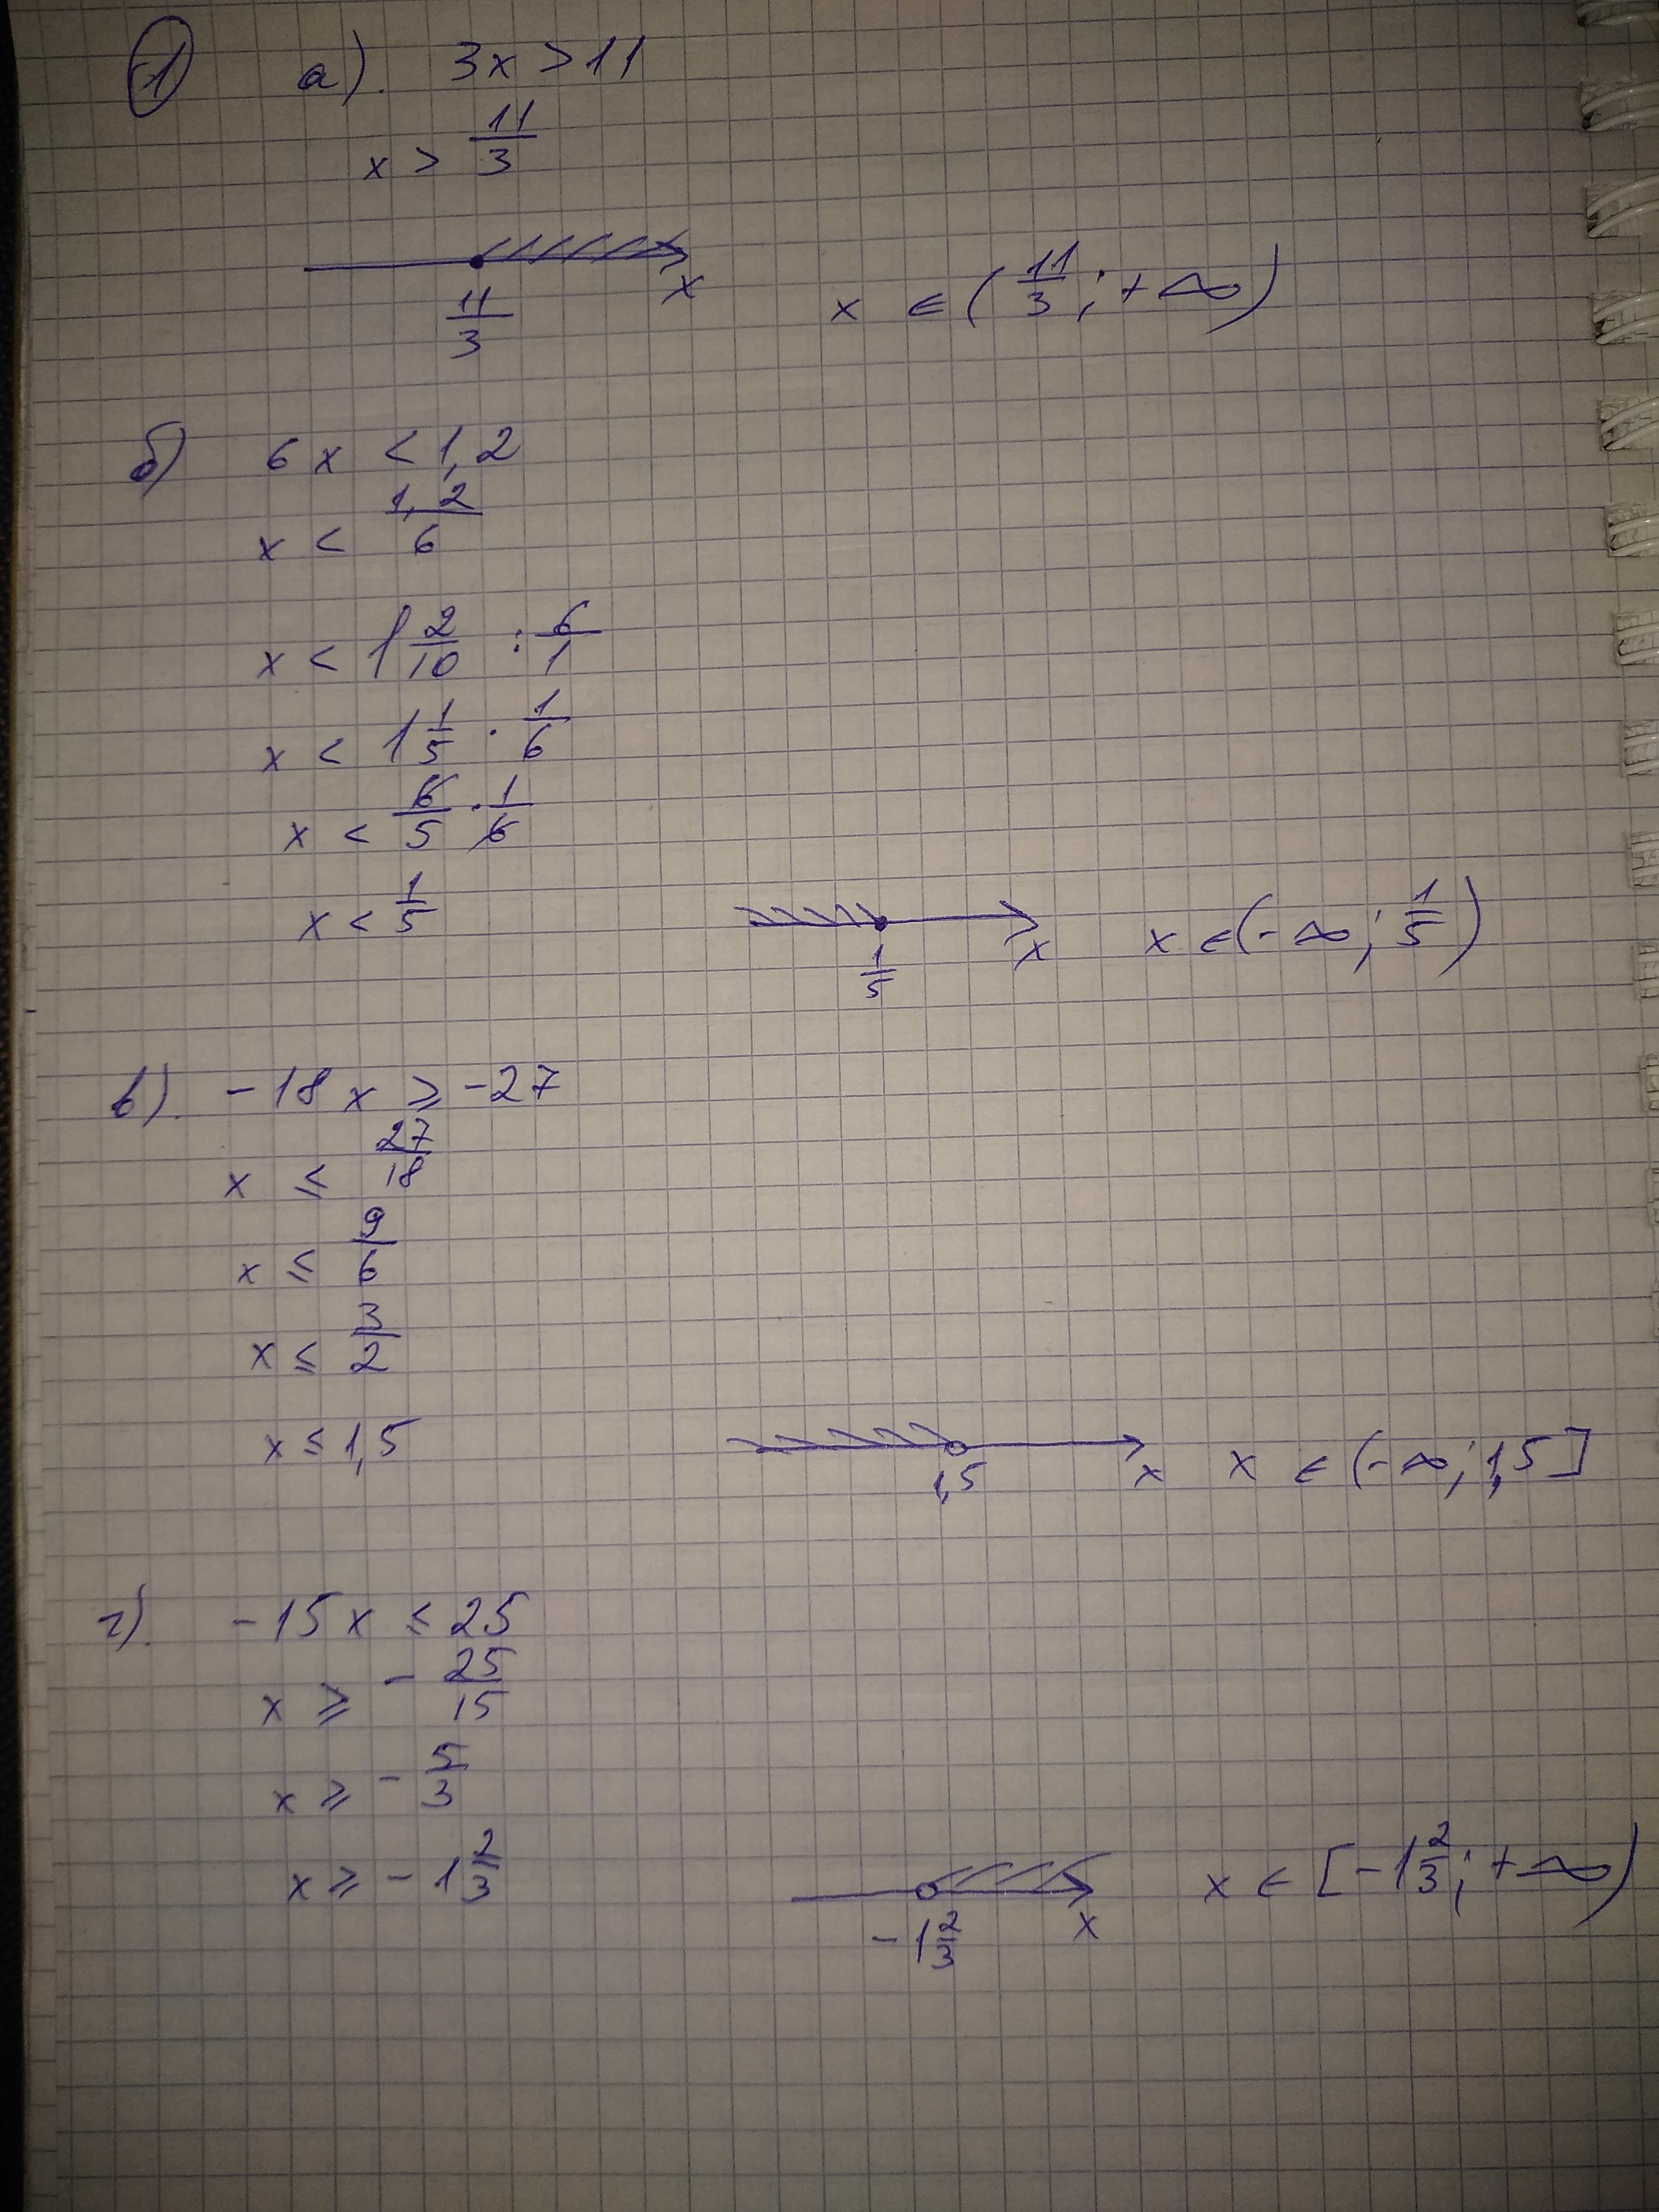 1 а). 3x > 11
x > 11/3
11/3 x x ∈ (11/3; +∞)
б) 6x < 1,2
x < 1,2/6
x < 1 2/10 : 6/1
x < 1 1/5 · 1/6
x < 6/5 · 1/6
x < 1/5 1/5 x x ∈ (-∞; 1/5)
в). -18x ⩾ -27
x ≤ 27/18
x ≤ 9/6
x ≤ 3/2
x ≤ 1,5 1,5 x x ∈ (-∞; 1,5]
г). -15x ≤ 25
x ⩾ - 25/15
x ⩾ - 5/3
x ⩾ - 1 2/3 -1 2/3 x x ∈ [-1 2/3; +∞)